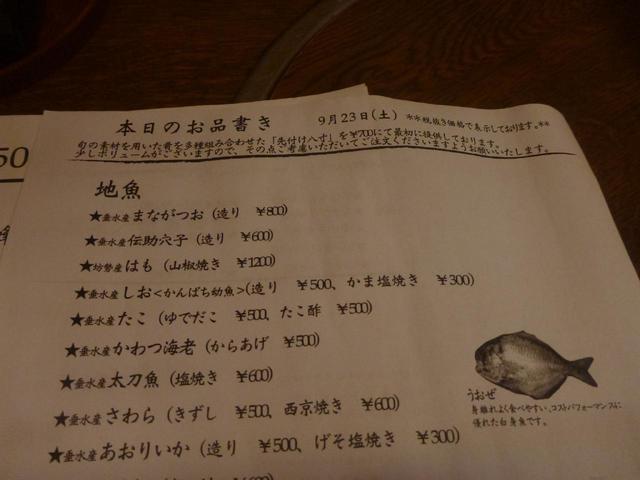 本日のお品書き 9月23日(土) **税抜き価格で表示しております。**
旬の素材を用いた肴を多種組み合わせた「先付け八寸」を¥700にて最初に提供しております。
少しボリュームがございますので、その点ご考慮いただいてご注文くださいますようお願いいたします。
地魚
★垂水産まながつお(造り ¥800)
★垂水産伝助穴子(造り ¥600)
★坊勢産はも(山椒焼き ¥1200)
★垂水産しお<かんぱち幼魚>(造り ¥500、かま塩焼き ¥300)
★垂水産たこ(ゆでだこ ¥500、たこ酢 ¥500)
★垂水産かわつ海老(からあげ ¥500)
★垂水産太刀魚(塩焼き ¥600)
★垂水産さわら(きずし ¥500、西京焼き ¥600)
★垂水産あおりいか(造り ¥500、げそ塩焼き ¥300)
うおぜ
身離れよく食べやすい、コストパフォーマンスに
優れた白身魚です。
50